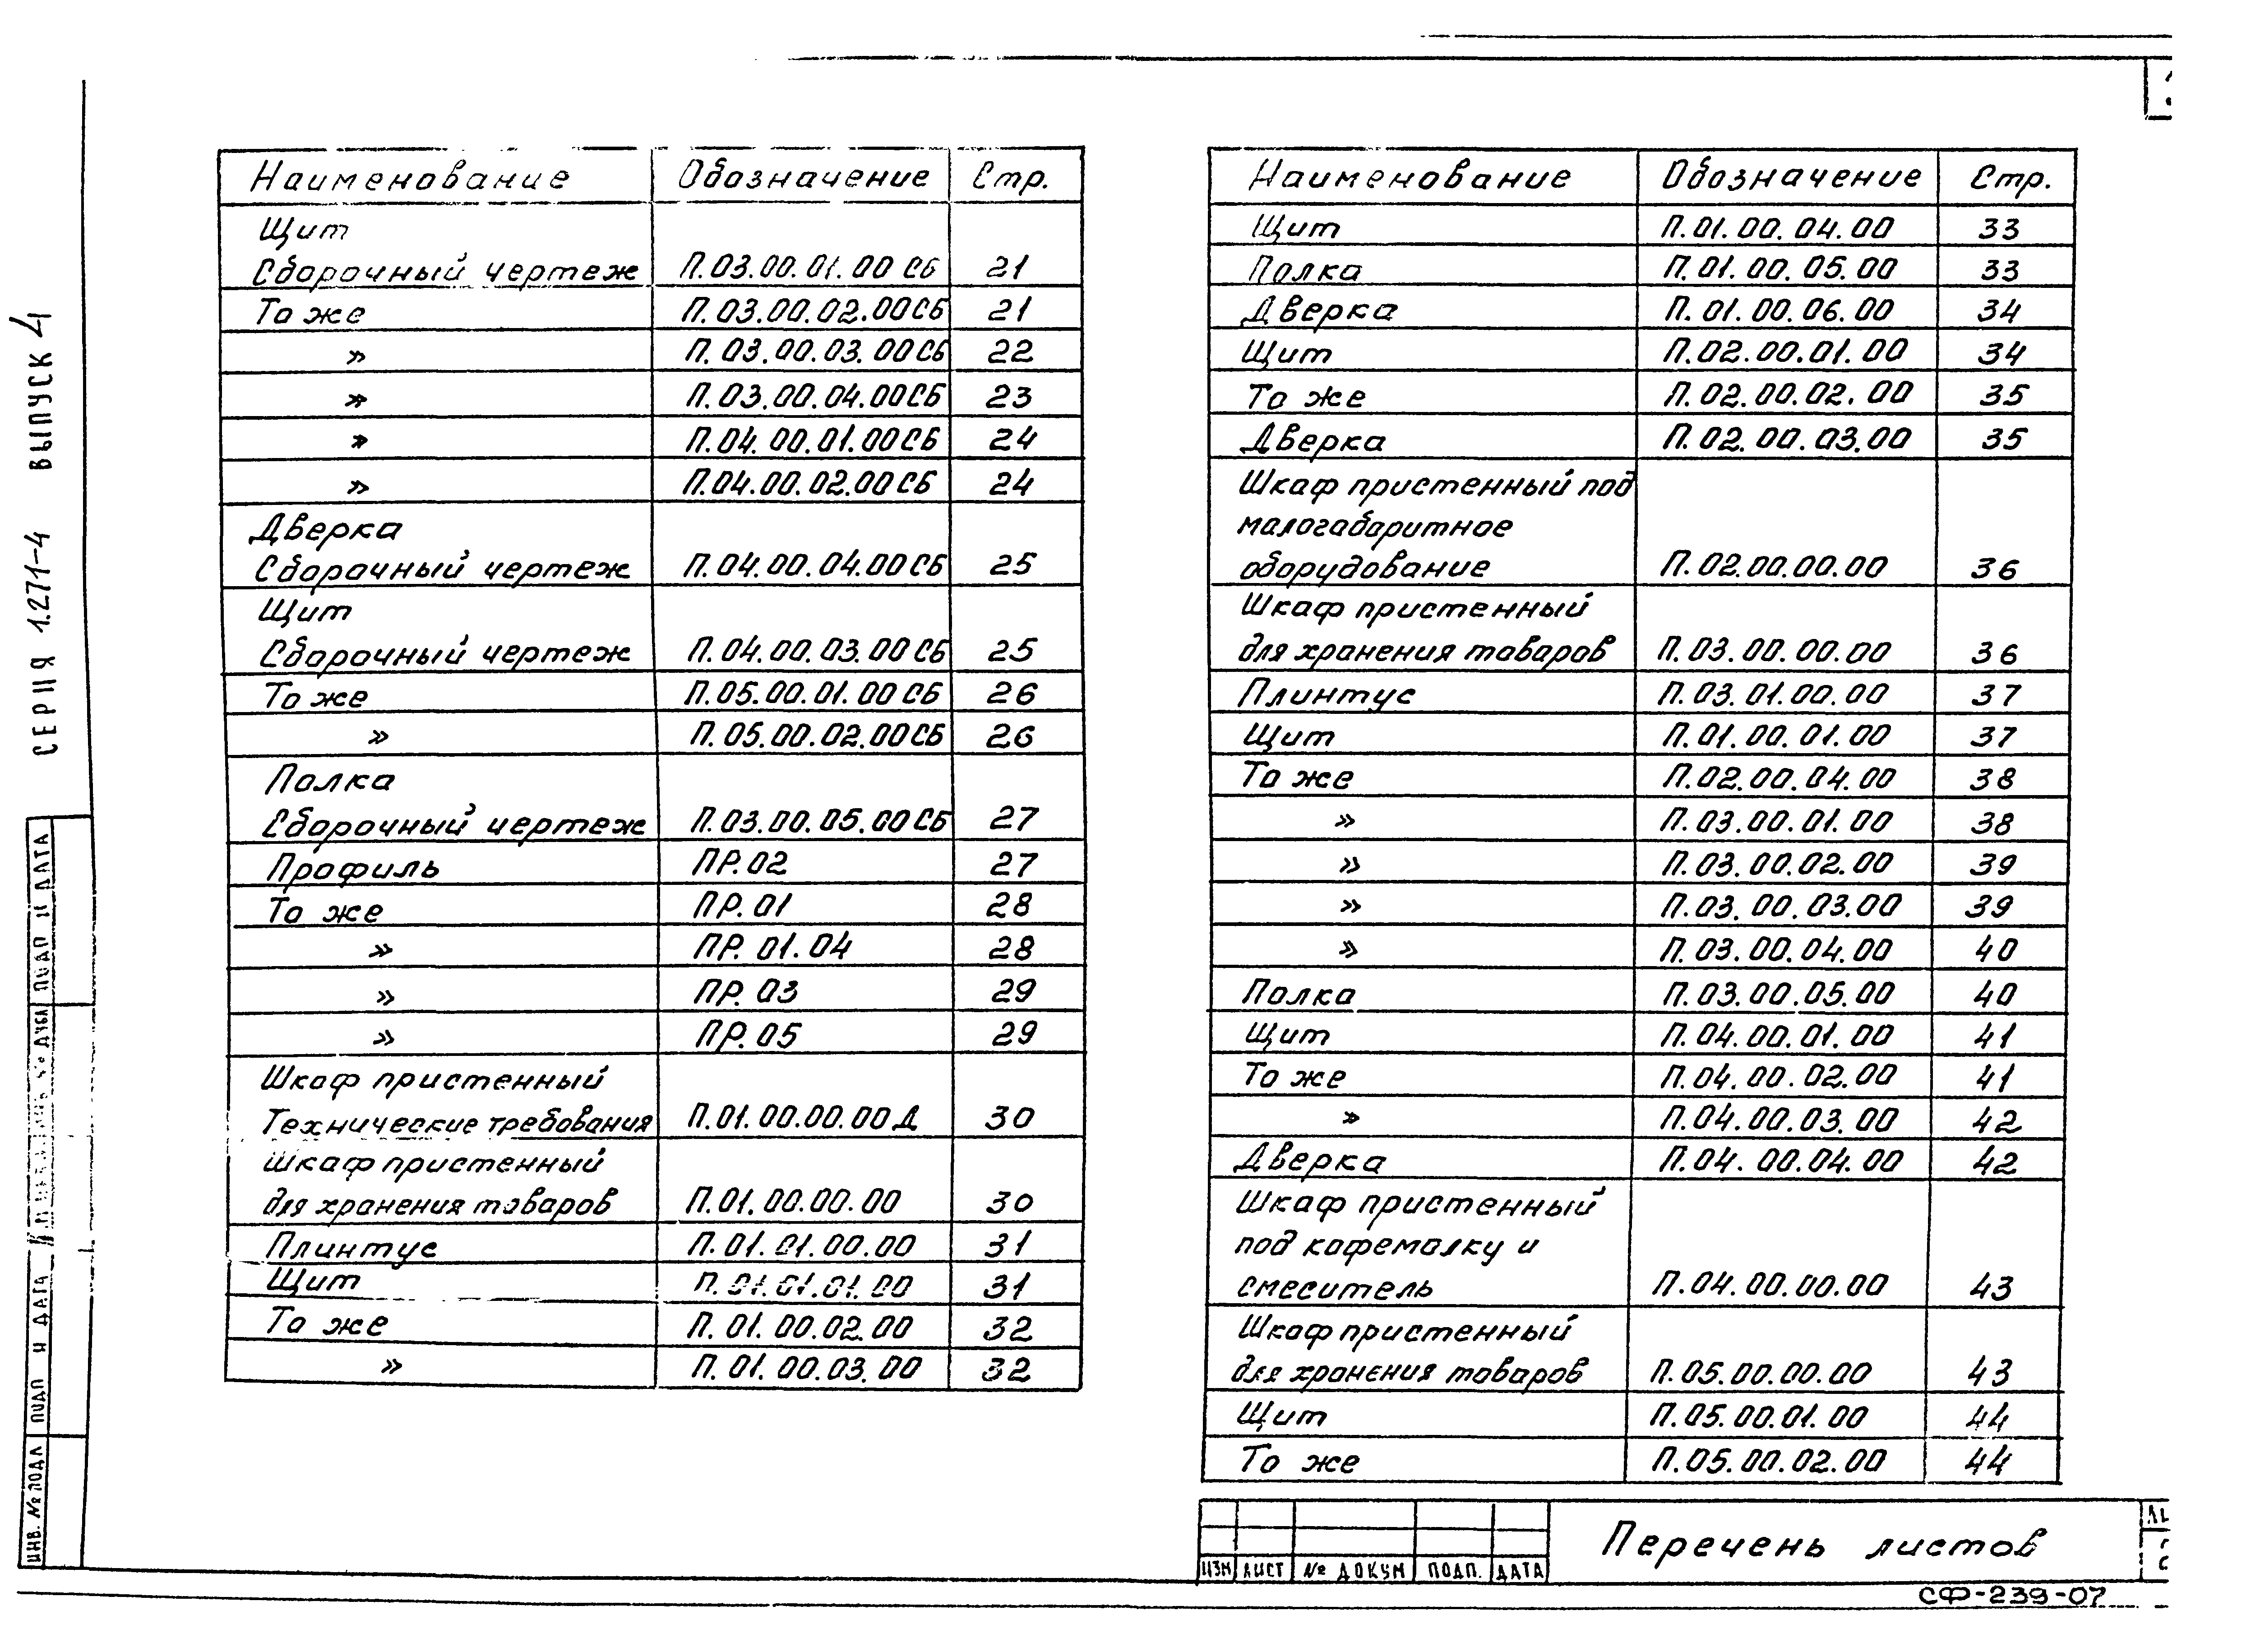 Наименование Обозначение Стр.
Щит
Сборочный чертеж П.03.00.01.00 СБ 21
То же П.03.00.02.00 СБ 21
» П.03.00.03.00 СБ 22
» П.03.00.04.00 СБ 23
» П.04.00.01.00 СБ 24
» П.04.00.02.00 СБ 24
Дверка
Сборочный чертеж П.04.00.04.00 СБ 25
Щит
Сборочный чертеж П.04.00.03.00 СБ 25
То же П.05.00.01.00 СБ 26
» П.05.00.02.00 СБ 26
Полка
Сборочный чертеж П.03.00.05.00 СБ 27
Профиль ПР.02 27
То же ПР.01 28
» ПР.01.04 28
» ПР.03 29
» ПР.05 29
Шкаф пристенный
Технические требования П.01.00.00.00 Д 30
Шкаф пристенный
для хранения товаров П.01.00.00.00 30
Плинтус П.01.01.00.00 31
Щит П.01.01.01.00 31
То же П.01.00.02.00 32
» П.01.00.03.00 32
Наименование Обозначение Стр.
Щит П.01.00.04.00 33
Полка П.01.00.05.00 33
Дверка П.01.00.06.00 34
Щит П.02.00.01.00 34
То же П.02.00.02.00 35
Дверка П.02.00.03.00 35
Шкаф пристенный под
малогабаритное
оборудование П.02.00.00.00 36
Шкаф пристенный
для хранения товаров П.03.00.00.00 36
Плинтус П.03.01.00.00 37
Щит П.01.00.01.00 37
То же П.02.00.04.00 38
» П.03.00.01.00 38
» П.03.00.02.00 39
» П.03.00.03.00 39
» П.03.00.04.00 40
Полка П.03.00.05.00 40
Щит П.04.00.01.00 41
То же П.04.00.02.00 41
» П.04.00.03.00 42
Дверка П.04.00.04.00 42
Шкаф пристенный
под кофемолку и
смеситель П.04.00.00.00 43
Шкаф пристенный
для хранения товаров П.05.00.00.00 43
Щит П.05.00.01.00 44
То же П.05.00.02.00 44
СЕРИЯ 1.271-4 ВЫПУСК 4
ИНВ. № ПОДЛ ПОДП И ДАТА № ДУБЛ ПОДП И ДАТА
ИЗМ ЛИСТ № ДОКУМ ПОДП. ДАТА
Перечень листов
СФ-239-07